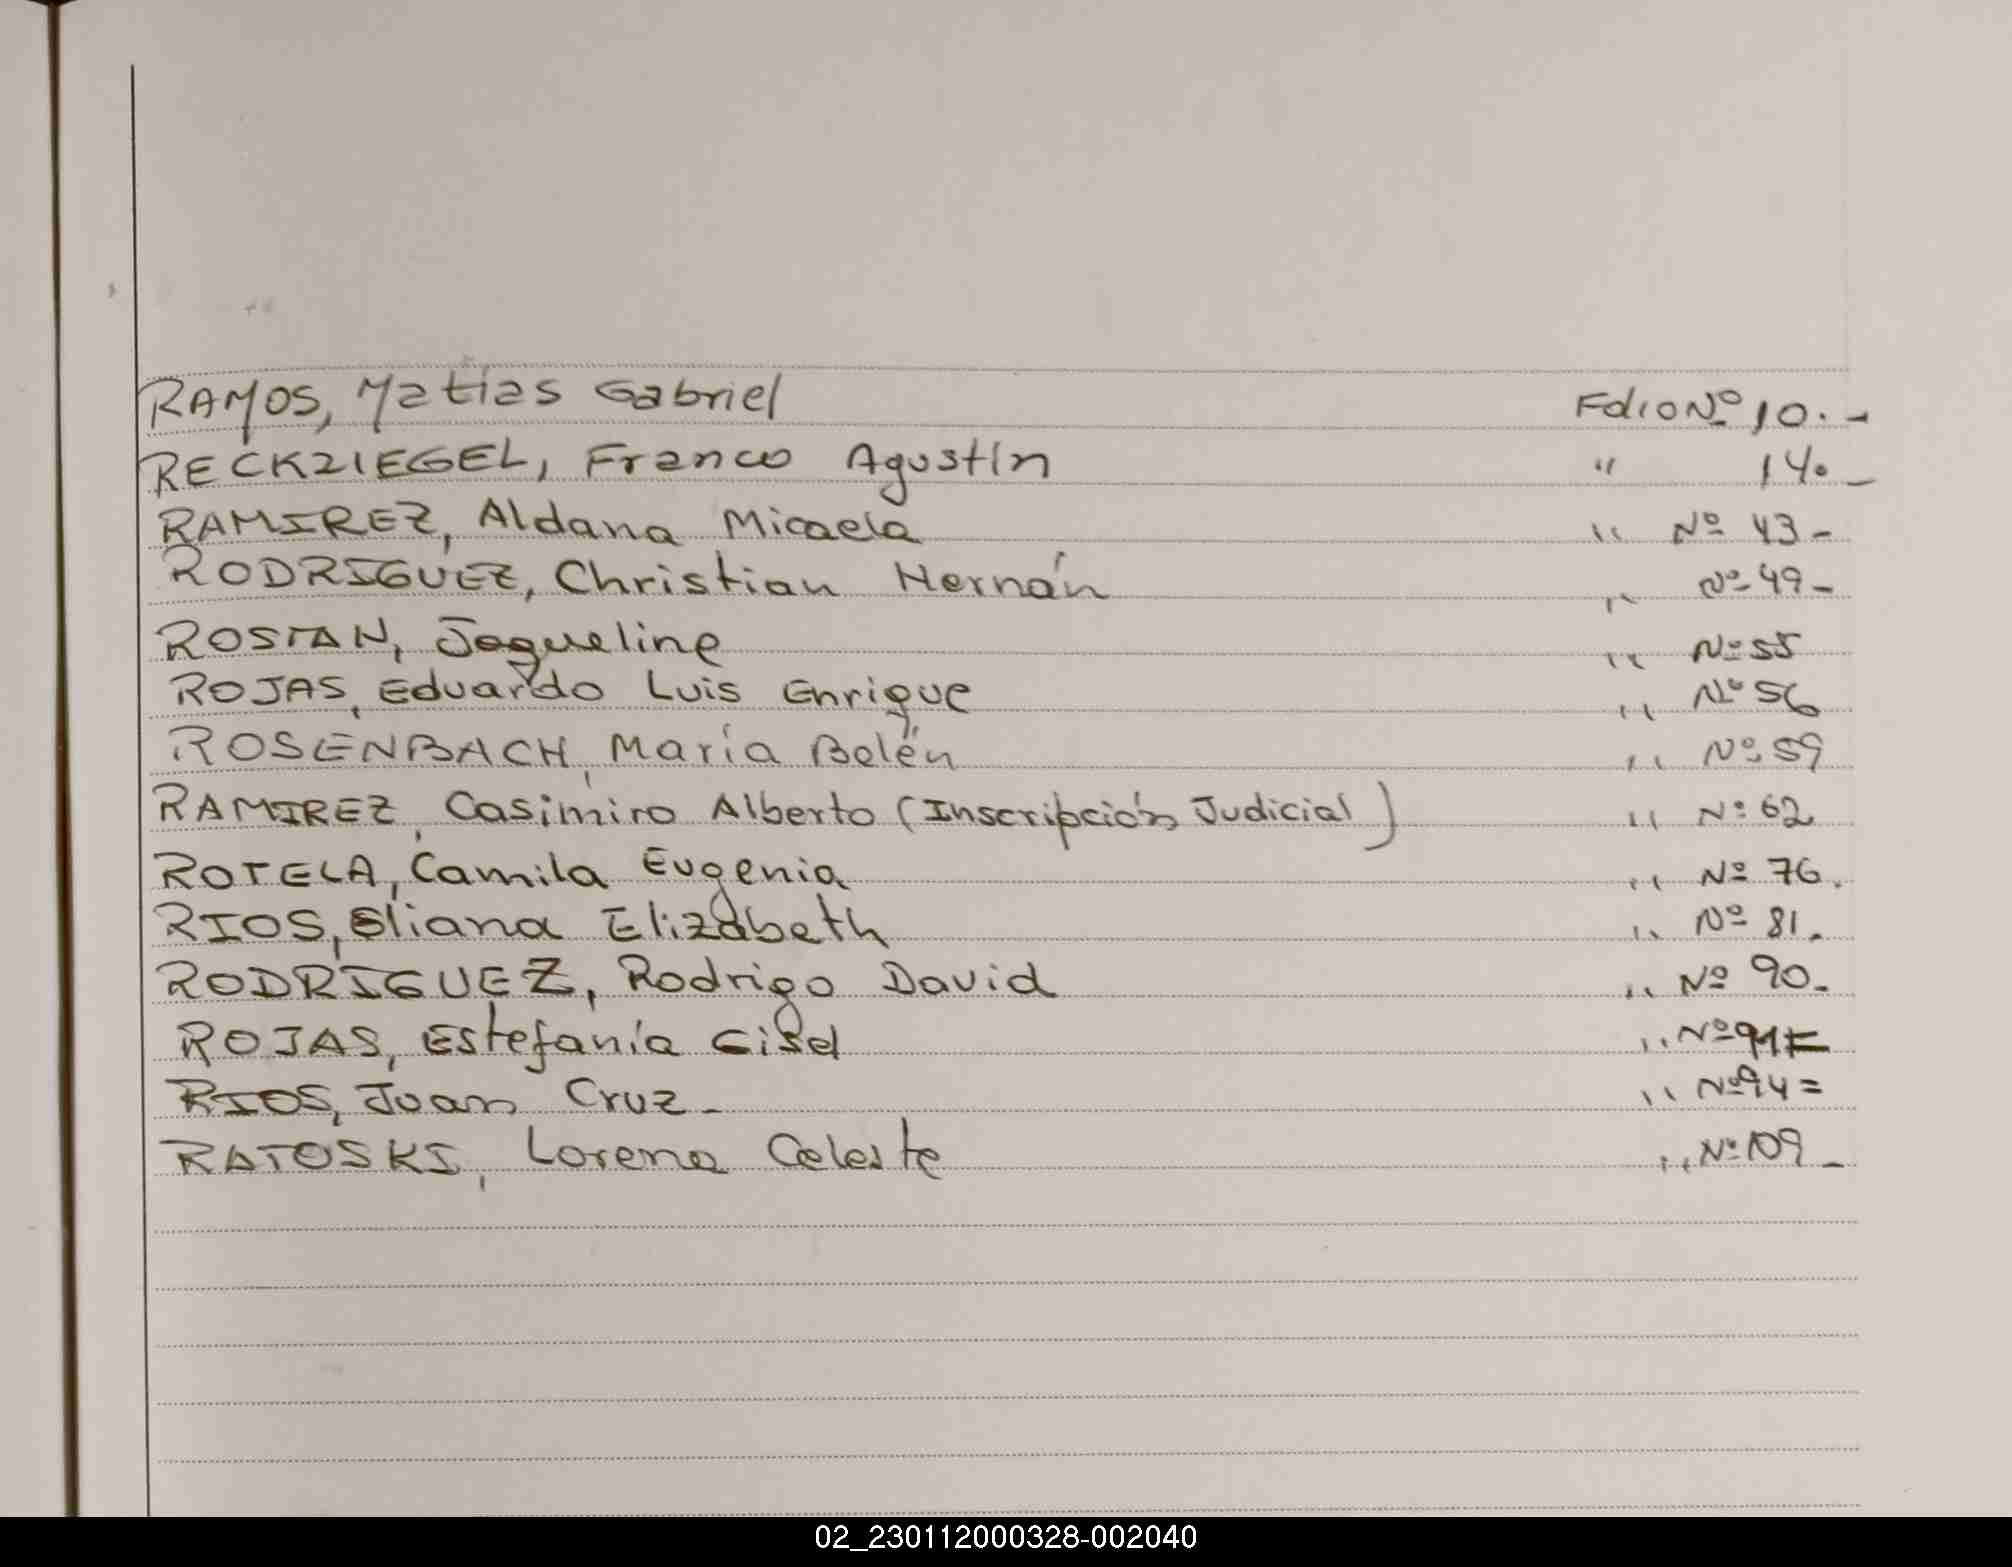 RAMOS, Matias Gabriel Folio Nº 10.-
RECKZIEGEL, Franco Agustín " 14.-
RAMIREZ, Aldana Micaela " Nº 43-
RODRIGUEZ, Christian Hernán " Nº 49-
ROSTAN, Jaqueline " Nº 55
ROJAS, Eduardo Luis Enrique " Nº 56
ROSENBACH, María Belén " Nº 59
RAMIREZ, Casimiro Alberto (Inscripción Judicial) " Nº 62
ROTELA, Camila Eugenia " Nº 76.
RIOS, Eliana Elizabeth " Nº 81.
RODRIGUEZ, Rodrigo David " Nº 90.
ROJAS, Estefanía Gisel " Nº 91=
RIOS, Juan Cruz- " Nº 94=
RATOSKI, Lorena Celeste " Nº 109-
02_230112000328-002040